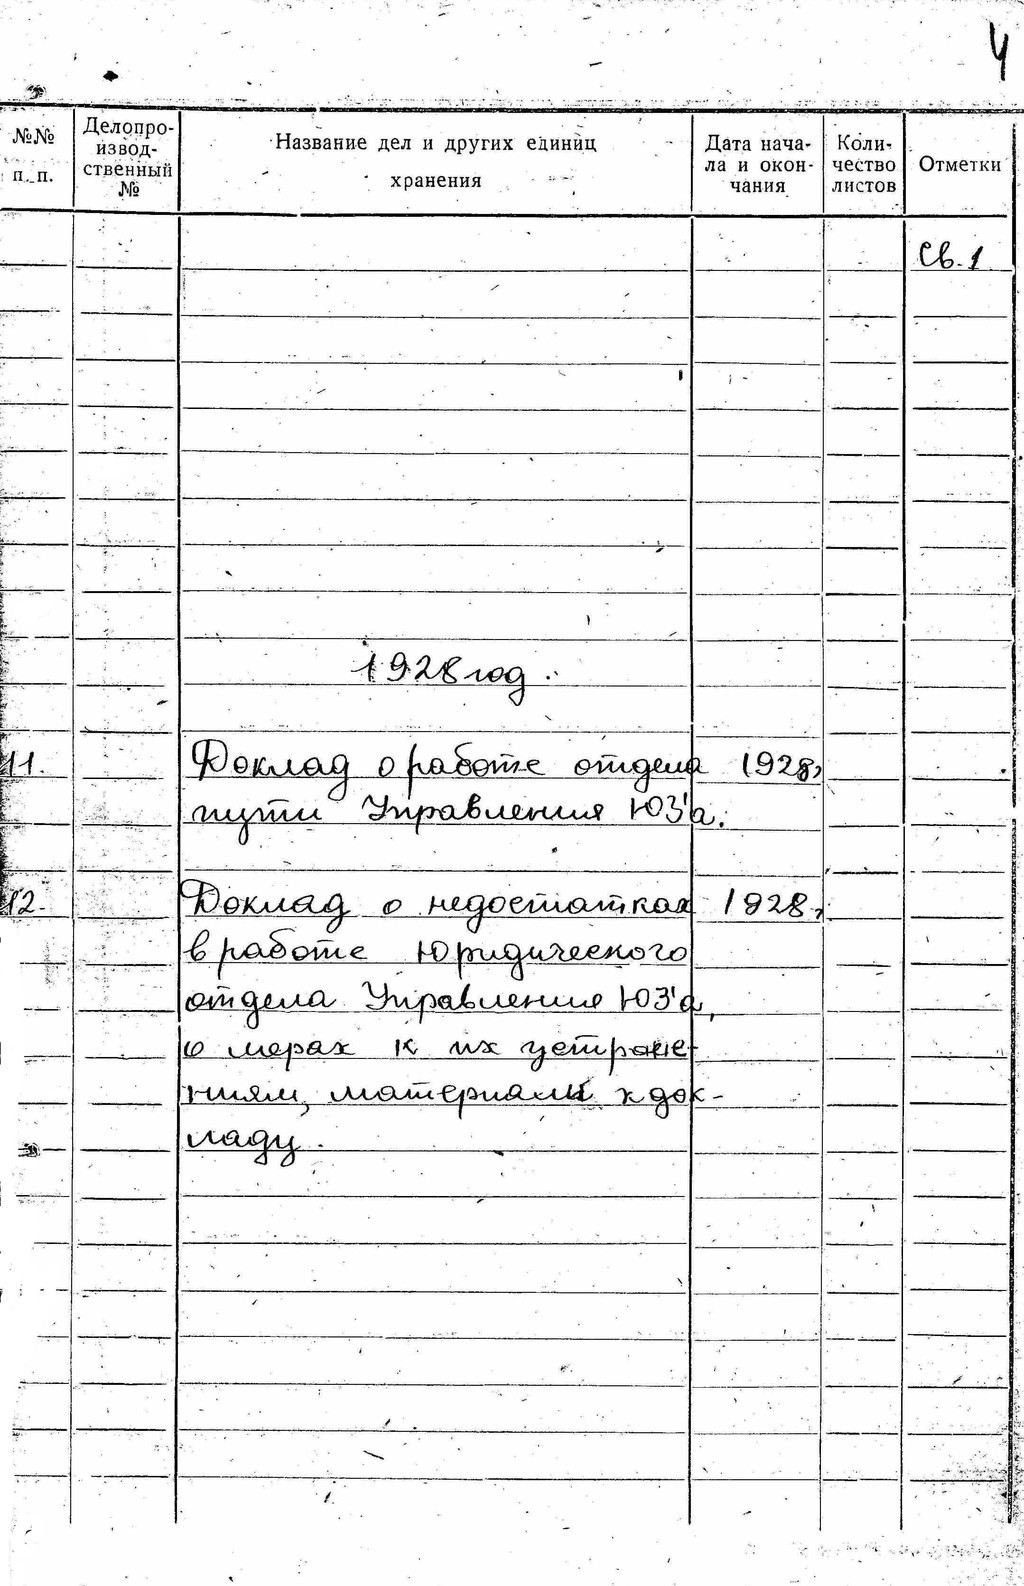 4
№№ п. п.
Делопро-
извод-
ственный
№
Название дел и других единиц
хранения
Дата нача-
ла и окон-
чания
Коли-
чество
листов
Отметки
Св. 1
1928 год.
11. Доклад о работе отдела 1928г
пути Управления ЮЗ'а.
12. Доклад о недостатках 1928г
в работе Юридического
отдела Управления ЮЗ'а,
о мерах к их устране-
ниям, материалы к док-
ладу.